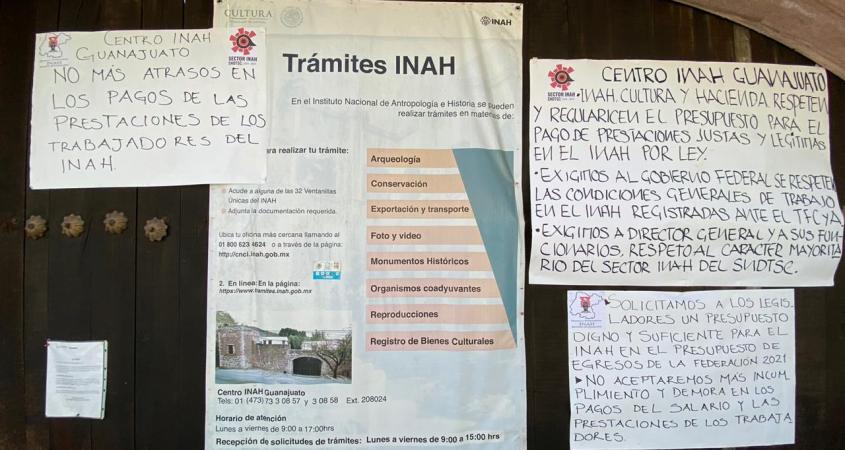 CENTRO INAH
GUANAJUATO
NO MÁS ATRASOS EN
LOS PAGOS DE LAS
PRESTACIONES DE LOS
TRABAJADORES DEL
INAH.
SECTOR INAH
CULTURA
INAH
Trámites INAH
En el Instituto Nacional de Antropología e Historia se pueden
realizar trámites en materias de:
para realizar tu trámite:
Acude a alguna de las 32 Ventanillas
Únicas del INAH
Adjunta la documentación requerida.
Ubica tu oficina más cercana llamando al
01 800 623 4624 o a través de la página:
http://cnci.inah.gob.mx
2. En línea: En la página:
https://www.tramites.inah.gob.mx
Arqueología
Conservación
Exportación y transporte
Foto y video
Monumentos Históricos
Organismos coadyuvantes
Reproducciones
Registro de Bienes Culturales
Centro INAH Guanajuato
Tels: 01 (473) 73 3 08 57 y 3 08 58 Ext. 208024
Horario de atención
Lunes a viernes de 9:00 a 17:00hrs
Recepción de solicitudes de trámites: Lunes a viernes de 9:00 a 15:00 hrs
SECTOR INAH
CENTRO INAH GUANAJUATO
• INAH, CULTURA Y HACIENDA RESPETEN
Y REGULARICEN EL PRESUPUESTO PARA EL
PAGO DE PRESTACIONES JUSTAS Y LEGÍTIMAS
EN EL INAH POR LEY.
• EXIGIMOS AL GOBIERNO FEDERAL SE RESPETEN
LAS CONDICIONES GENERALES DE TRABAJO
EN EL INAH REGISTRADAS ANTE EL TFCyA
• EXIGIMOS A DIRECTOR GENERAL Y A SUS FUN-
CIONARIOS, RESPETO AL CARACTER MAYORITA
RIO DEL SECTOR INAH DEL SNDTSC.
INAH
SOLICITAMOS A LOS LEGIS
LADORES UN PRESUPUESTO
DIGNO Y SUFICIENTE PARA EL
INAH EN EL PRESUPUESTO DE
EGRESOS DE LA FEDERACIÓN 2021
NO ACEPTAREMOS MÁS INCUM
PLIMIENTO Y DEMORA EN LOS
PAGOS DEL SALARIO Y LAS
PRESTACIONES DE LOS TRABAJA
DORES.